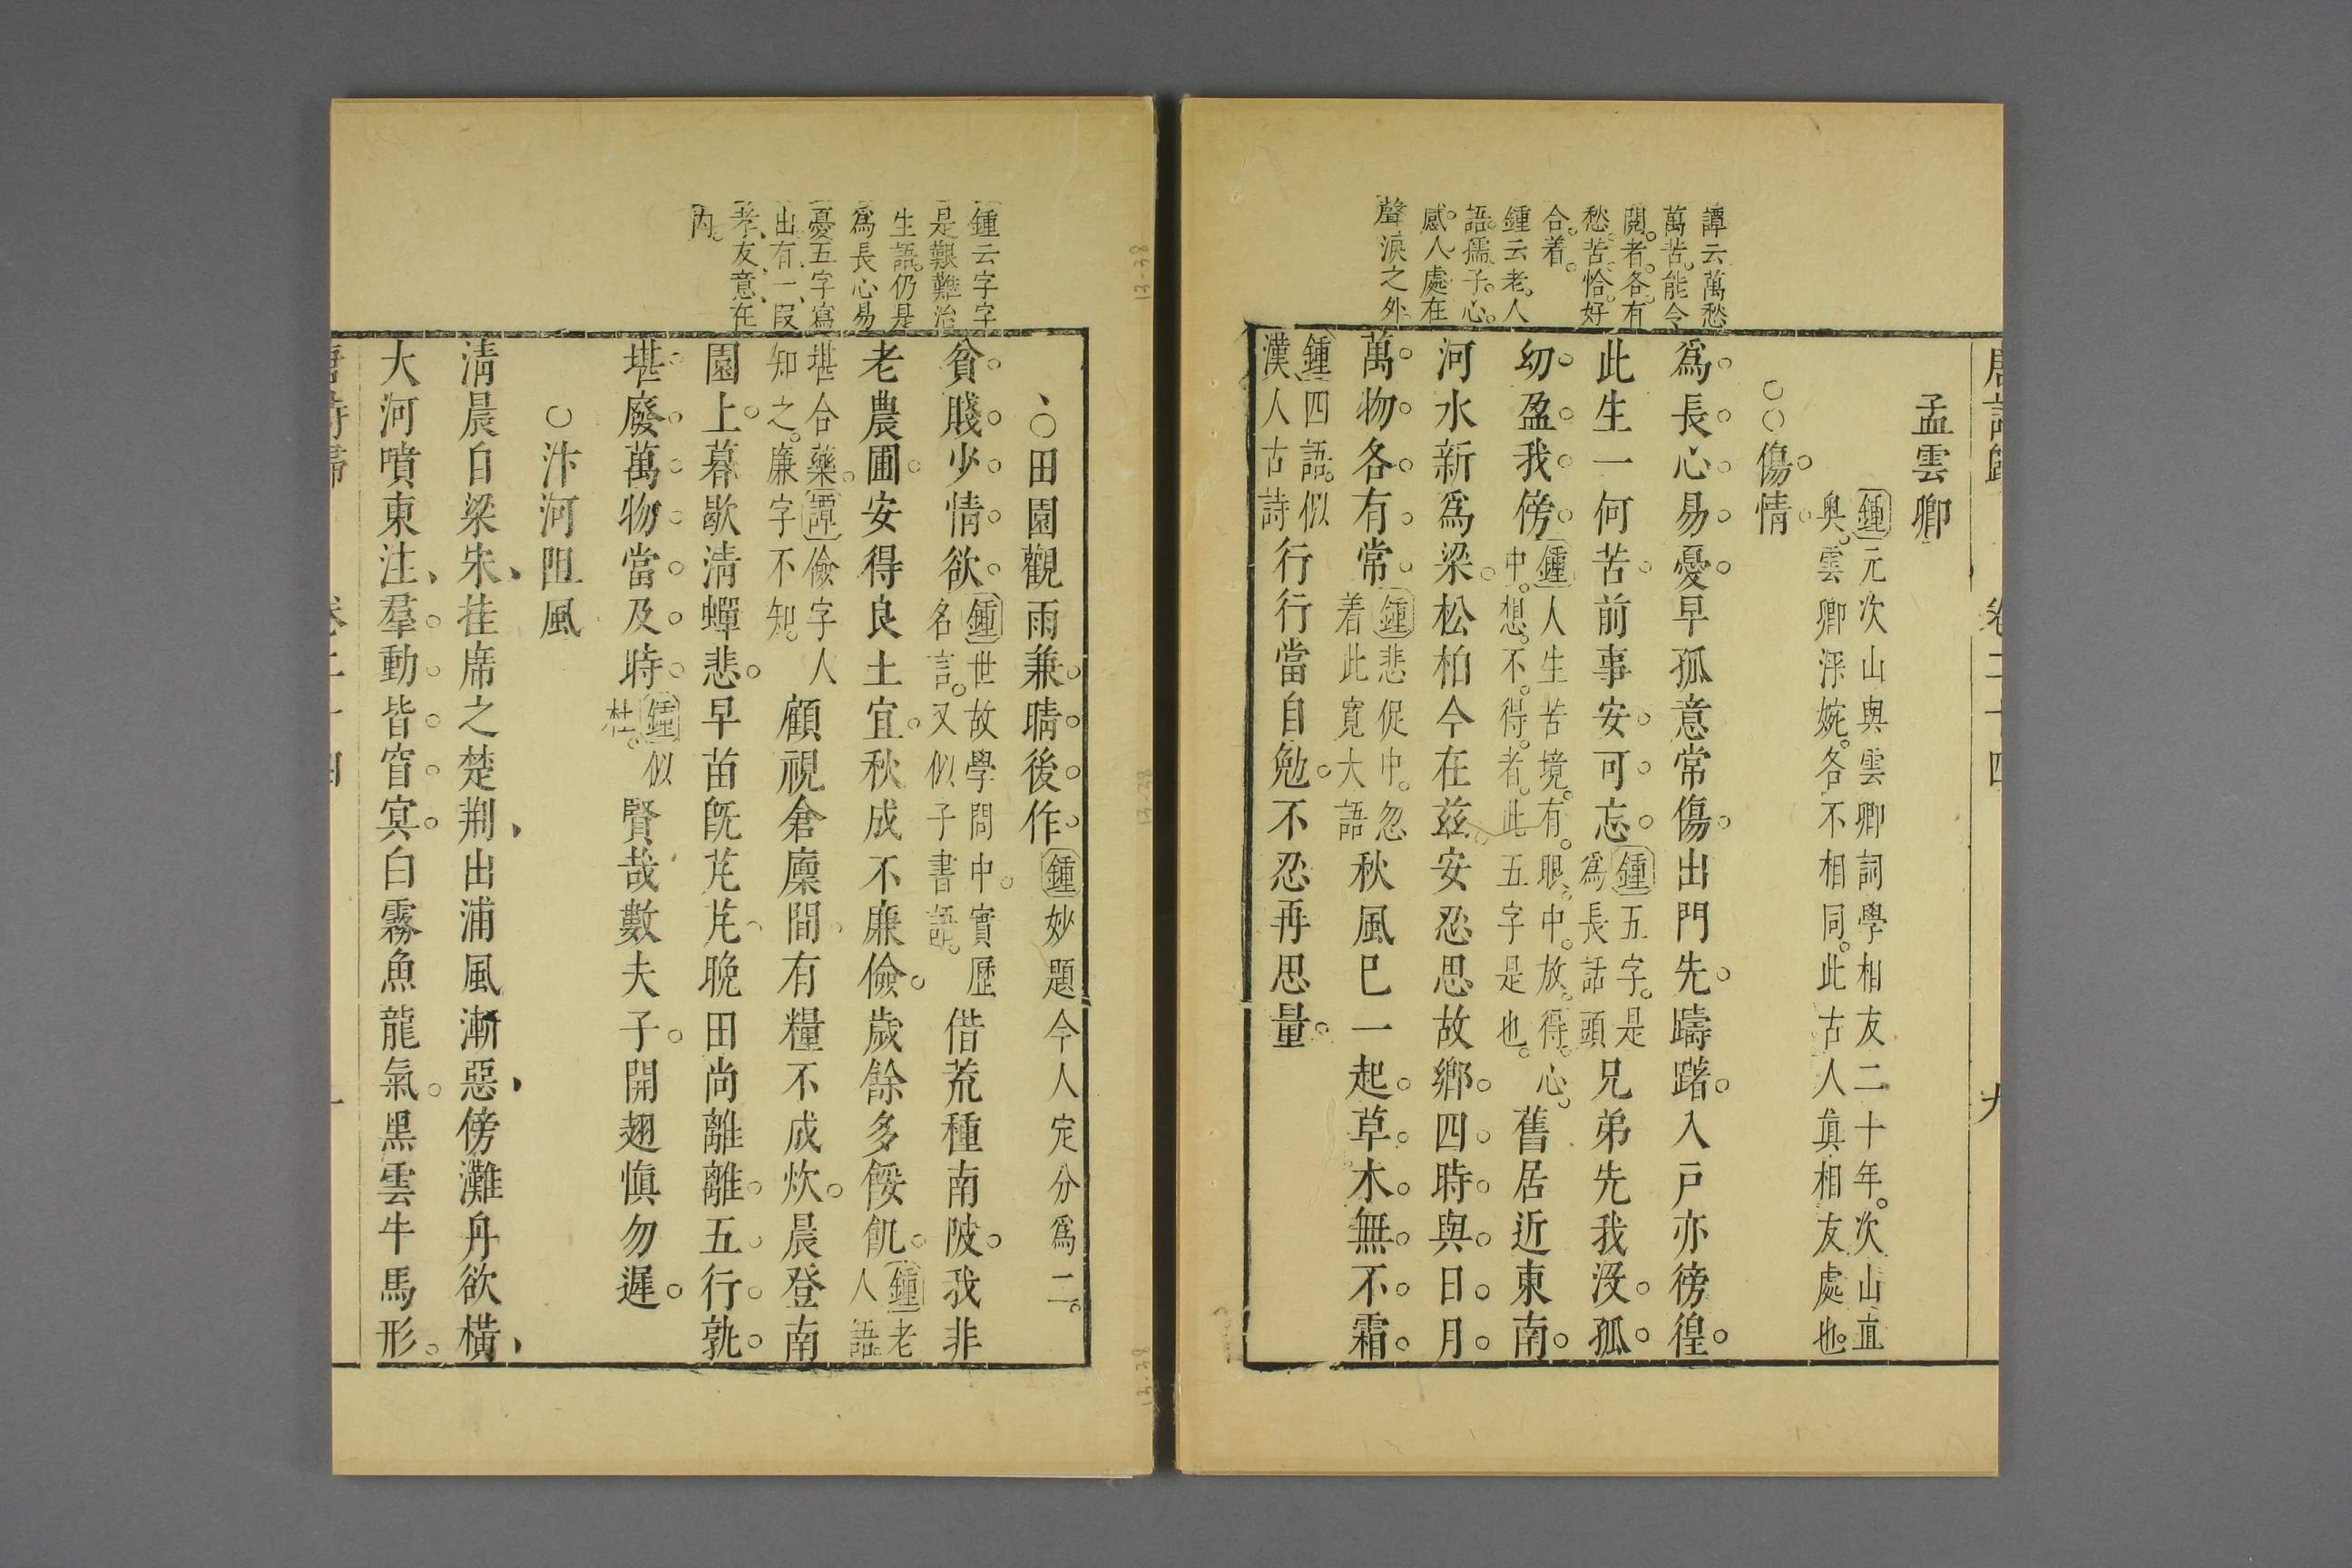 唐詩歸 卷二十四 九
孟雲卿
鍾元次山與雲卿詞學相友二十年。次山直
奧。雲卿深婉。各不相同。此古人眞相友處也。
○○傷情
爲長心易憂早孤意常傷出門先躊躇入戸亦徬徨
此生一何苦前事安可忘鍾五字。是
爲長話頭兄弟先我沒孤
幼盈我傍鍾人生苦境。有眼中。放得。心。
中。想不得者。此五字是也。舊居近東南
河水新爲梁松柏今在兹安忍思故鄉四時與日月
萬物各有常鍾悲促中。忽
着此寬大語秋風巳一起草木無不霜
鍾四語。似
漢人古詩行行當自勉不忍再思量
譚云萬愁
萬苦。能令
閱者各有
愁苦恰好
合着。
鍾云老人
語。孺子心。
感人處在
聲淚之外
、○田園觀雨兼晴後作鍾妙題今人定分爲二。
貧賤少情欲鍾世故學問中。實歷
名言。又似子書語。借荒種南陂我非
老農圃安得良土宜秋成不廉儉歲餘多餒飢鍾老
人語
堪合藥。譚儉字人
知之。廉字不知。顧視倉廩間有糧不成炊晨登南
園上暮歇清蟬悲早苗旣芃芃晚田尚離離五行孰
堪廢萬物當及時鍾似
杜。賢哉數夫子開翅愼勿遲
○汴河阻風
清晨自梁宋挂席之楚荆出浦風漸惡傍灘舟欲橫
大河噴東注羣動皆窅冥白霧魚龍氣黑雲牛馬形
鍾云字字
是艱難治
生語。仍是
爲長心易
憂五字寫
出有一段
孝友意在
内。
唐詩歸 卷二十四